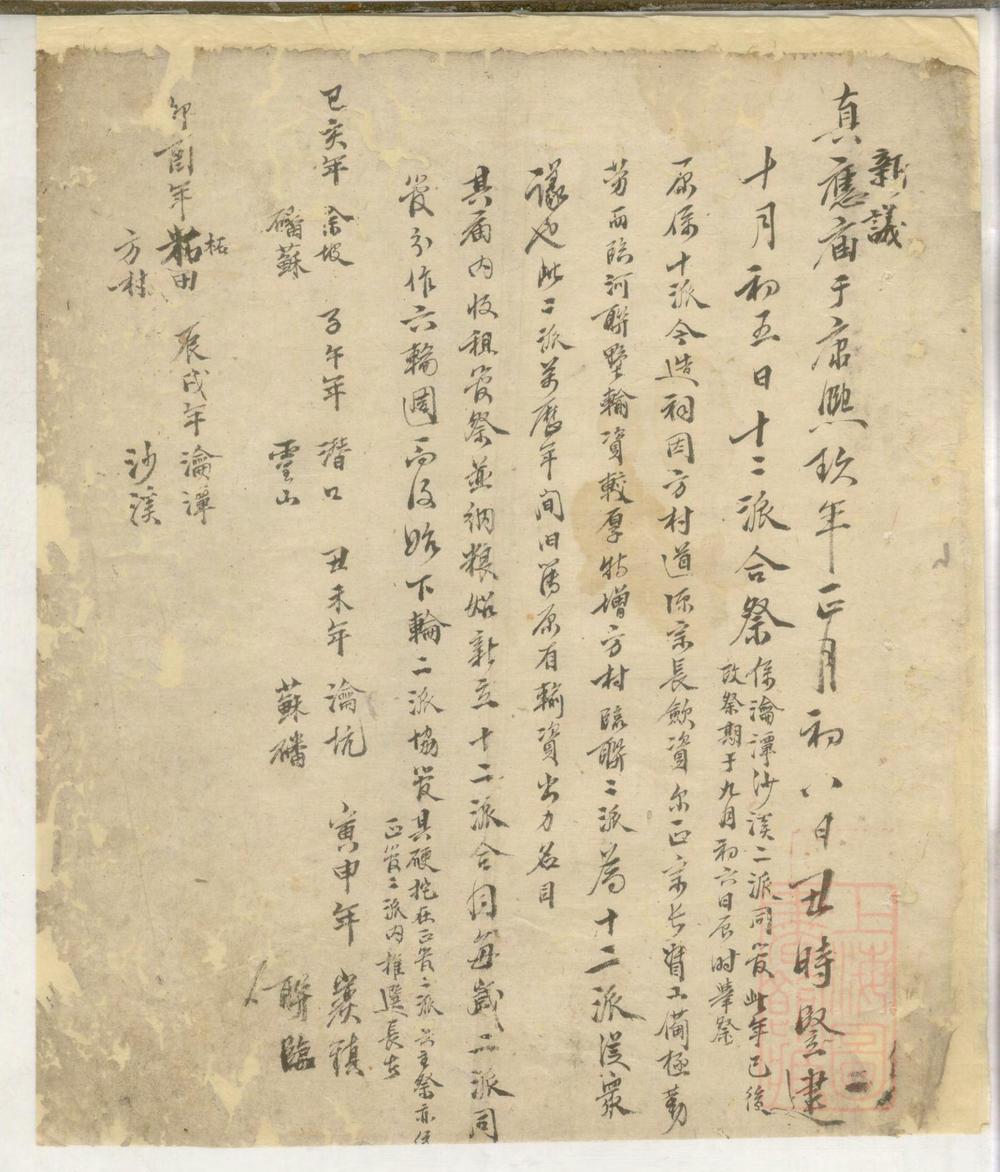 新議
真應廟于康熙玖年正月初八日丑時豎建
十月初五日十二派合祭
係瀹潭沙溪二派同管此年已後
改祭期于九月初六日辰時舉祭
原係十派今造祠因方村道源宗長歛資尔正宗長督工備極勤
勞而臨河聯墅輸資較厚特增方村臨聯二派為十二派從眾
議也此二派萬曆年間旧簿原有輸資出力名目
其廟内收租管祭並納粮煅新立十二派合同每歲二派同
管分作六輪週而復始下輪二派協管
其硬扽在正管二派六主祭亦係
正管二派内推選長者
巳亥年
淪坡
磻蘇
子午年
潛口
靈山
丑未年
瀹坑
蘇磻
寅申年
巽鎮
聯臨
卯酉年
柘
柘田
方村
辰戌年
瀹潭
沙溪